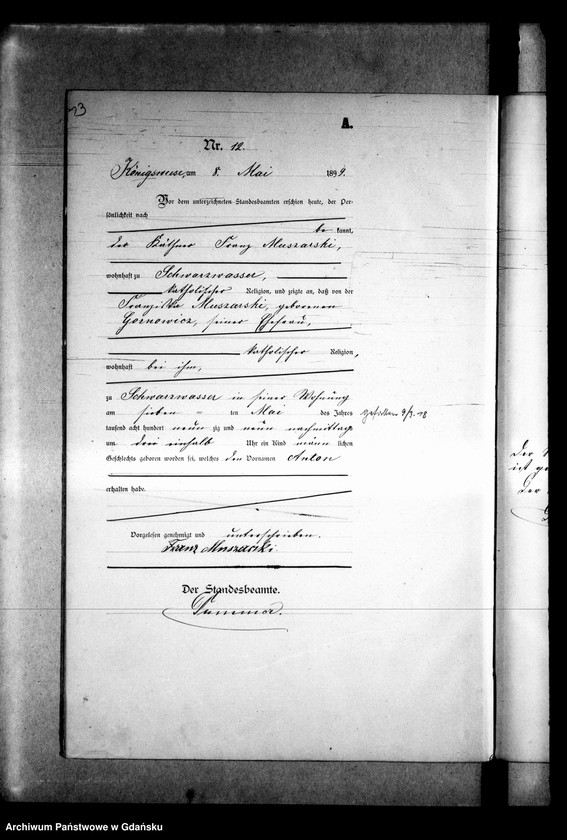 23
A.
Nr. 12.
Königswiese, am 8. Mai 1899.
Vor dem unterzeichneten Standesbeamten erschien heute, der Per-
sönlichkeit nach
be kannt,
der Käthner Franz Muszarski,
wohnhaft zu Schwarzwasser,
katholischer Religion, und zeigte an, daß von der
Franziska Muszarski, geborenen
Gornowicz, seiner Ehefrau,
katholischer Religion,
wohnhaft bei ihm,
zu Schwarzwasser in seiner Wohnung
am sieben ten Mai des Jahres
tausend acht hundert neun zig und neun nachmittags
um drei einhalb Uhr ein Kind männ lichen
Geschlechts geboren worden sei, welches den Vornamen Anton
erhalten habe.
Vorgelesen, genehmigt und unterschrieben.
Franz Muszarski
Der Standesbeamte.
Der
ist
Der
Archiwum Państwowe w Gdańsku